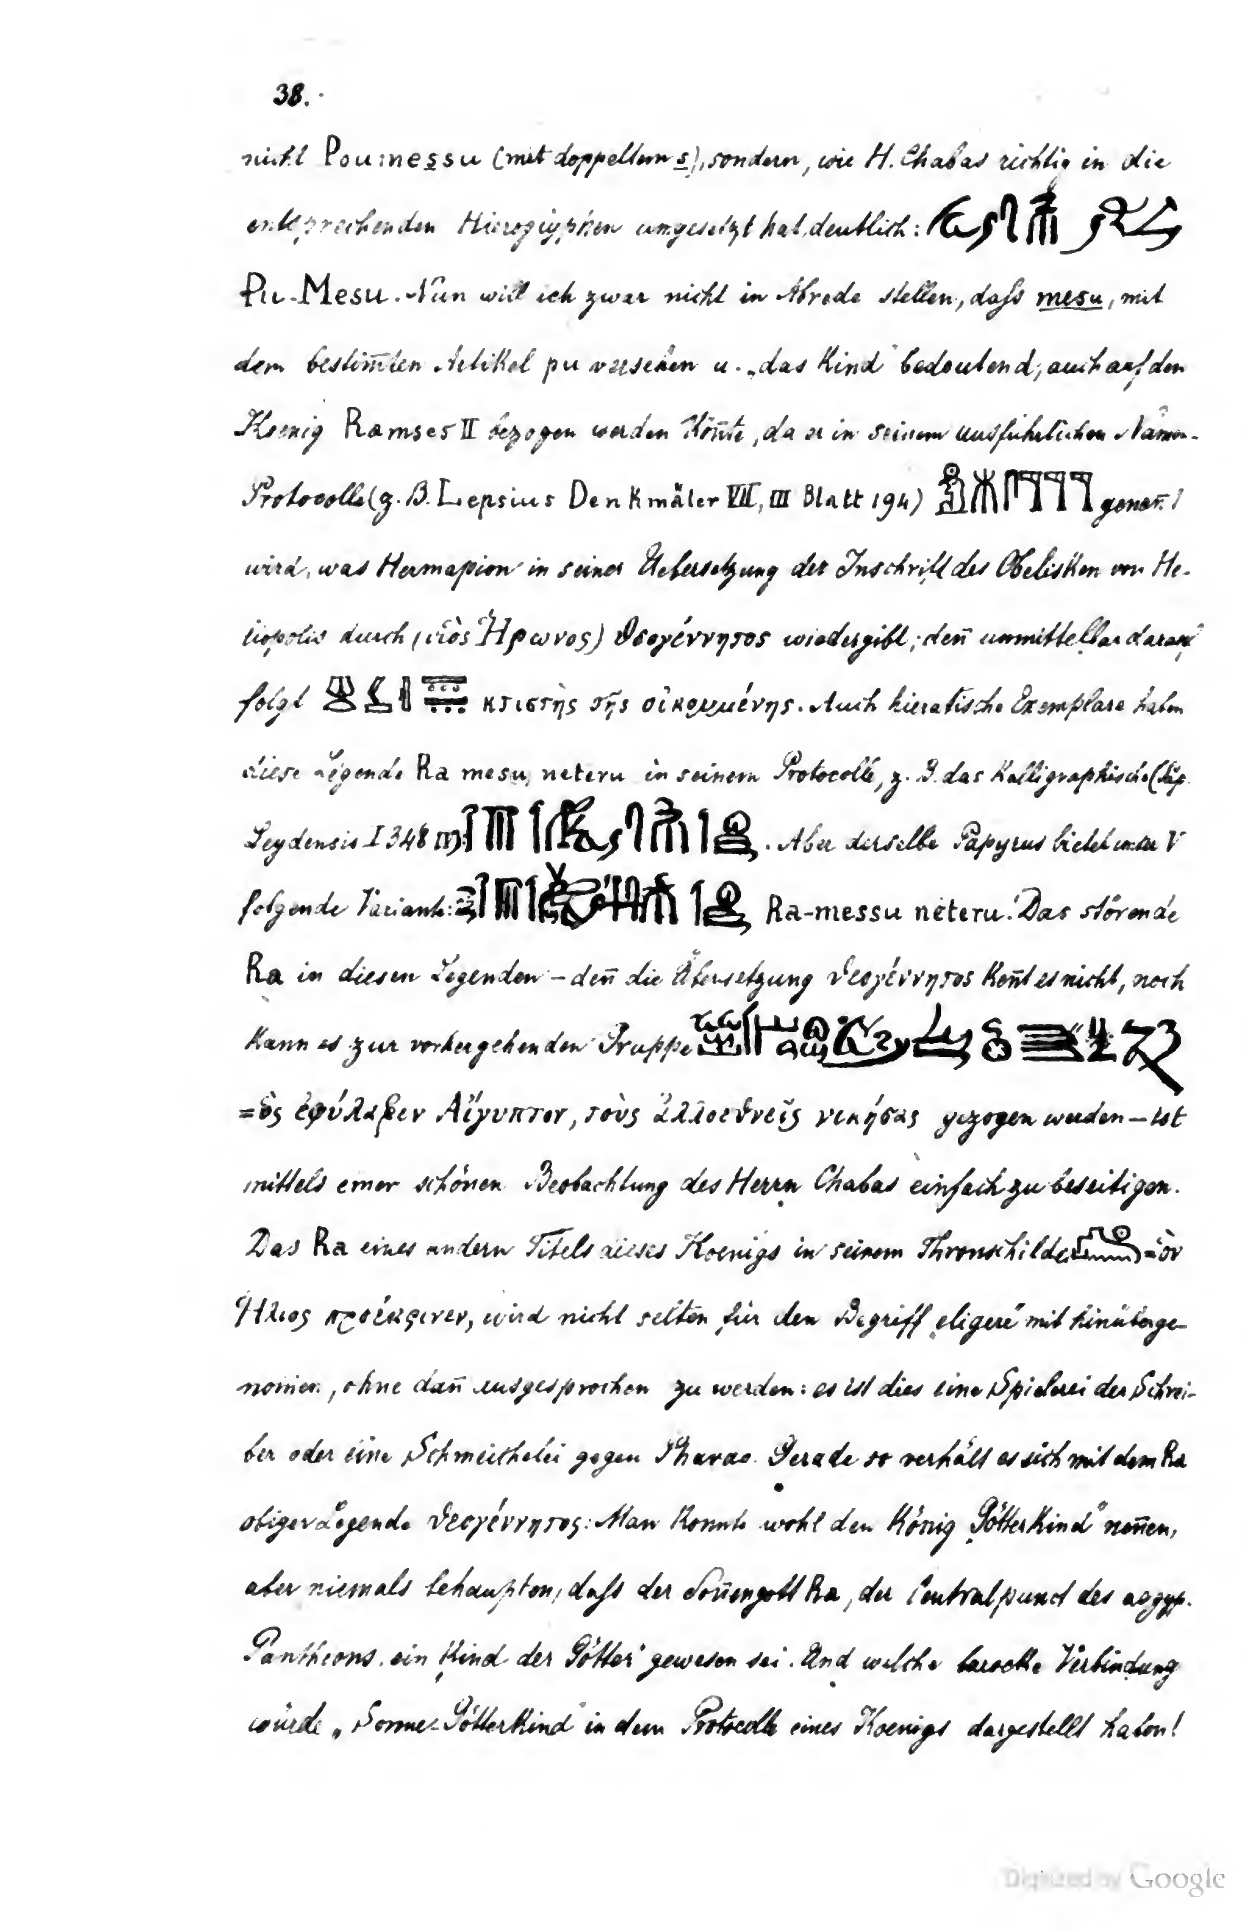 38.
nicht Poumessu (mit doppeltem s), sondern, wie H. Chabas richtig in die
entsprechenden Hieroglyphen umgesetzt hat, deutlich:
Pu-Mesu. Nun will ich zwar nicht in Abrede stellen, daſs mesu, mit
dem bestim̄ten Artikel pu versehen u. „das Kind" bedeutend, auch auf den
Koenig Ramses II bezogen werden kön̄te, da er in seinem ausführlichen Namen-
Protocolle (z. B. Lepsius Denkmäler VII, III Blatt 194) genan̄t
wird, was Hermapion in seiner Uebersetzung der Inschrift des Obelisken von He-
liopolis durch (υἱὸς Ἥρωνος) θεογέννητος wiedergibt; den̄ unmittelbar darauf
folgt κτιστὴς τῆς οἰκουμένης. Auch hieratische Exemplare haben
diese Legende Ra mesu neteru in seinem Protocolle, z. B. das Kalligraphische (Pap.
Leydensis I 348 . Aber derselbe Papyrus bietet unter V
folgende Variante: Ra-messu neteru! Das störende
Ra in diesen Legenden – den̄ die Übersetzung θεογέννητος ken̄t es nicht, noch
kann es zur vorhergehenden Gruppe
= ὃς ἐφύλαξεν Αἴγυπτον, τοὺς ἀλλοεθνεῖς νικήσας gezogen werden – ist
mittels einer schönen Beobachtung des Herrn Chabas einfach zu beseitigen.
Das Ra eines andern Titels dieses Koenigs in seinem Thronschilde = ὃν
Ἥλιος προέκρινεν, wird nicht selten für den Begriff „eligere" mit hinüberge-
nom̄en, ohne dan̄ ausgesprochen zu werden: es ist dies eine Spielerei der Schrei-
ber oder eine Schmeichelei gegen Pharao. Gerade so verhält es sich mit dem Ra
obiger Legende θεογέννητος: Man konnte wohl den König „Götterkind" nen̄en,
aber niemals behaupten, daſs der Son̄engott Ra, der Centralpunct des aegyp.
Pantheons, ein Kind der Götter gewesen sei. Und welche barocke Verbindung
würde „Sonne-Götterkind" in dem Protocolle eines Koenigs dargestellt haben!
Digitized by Google